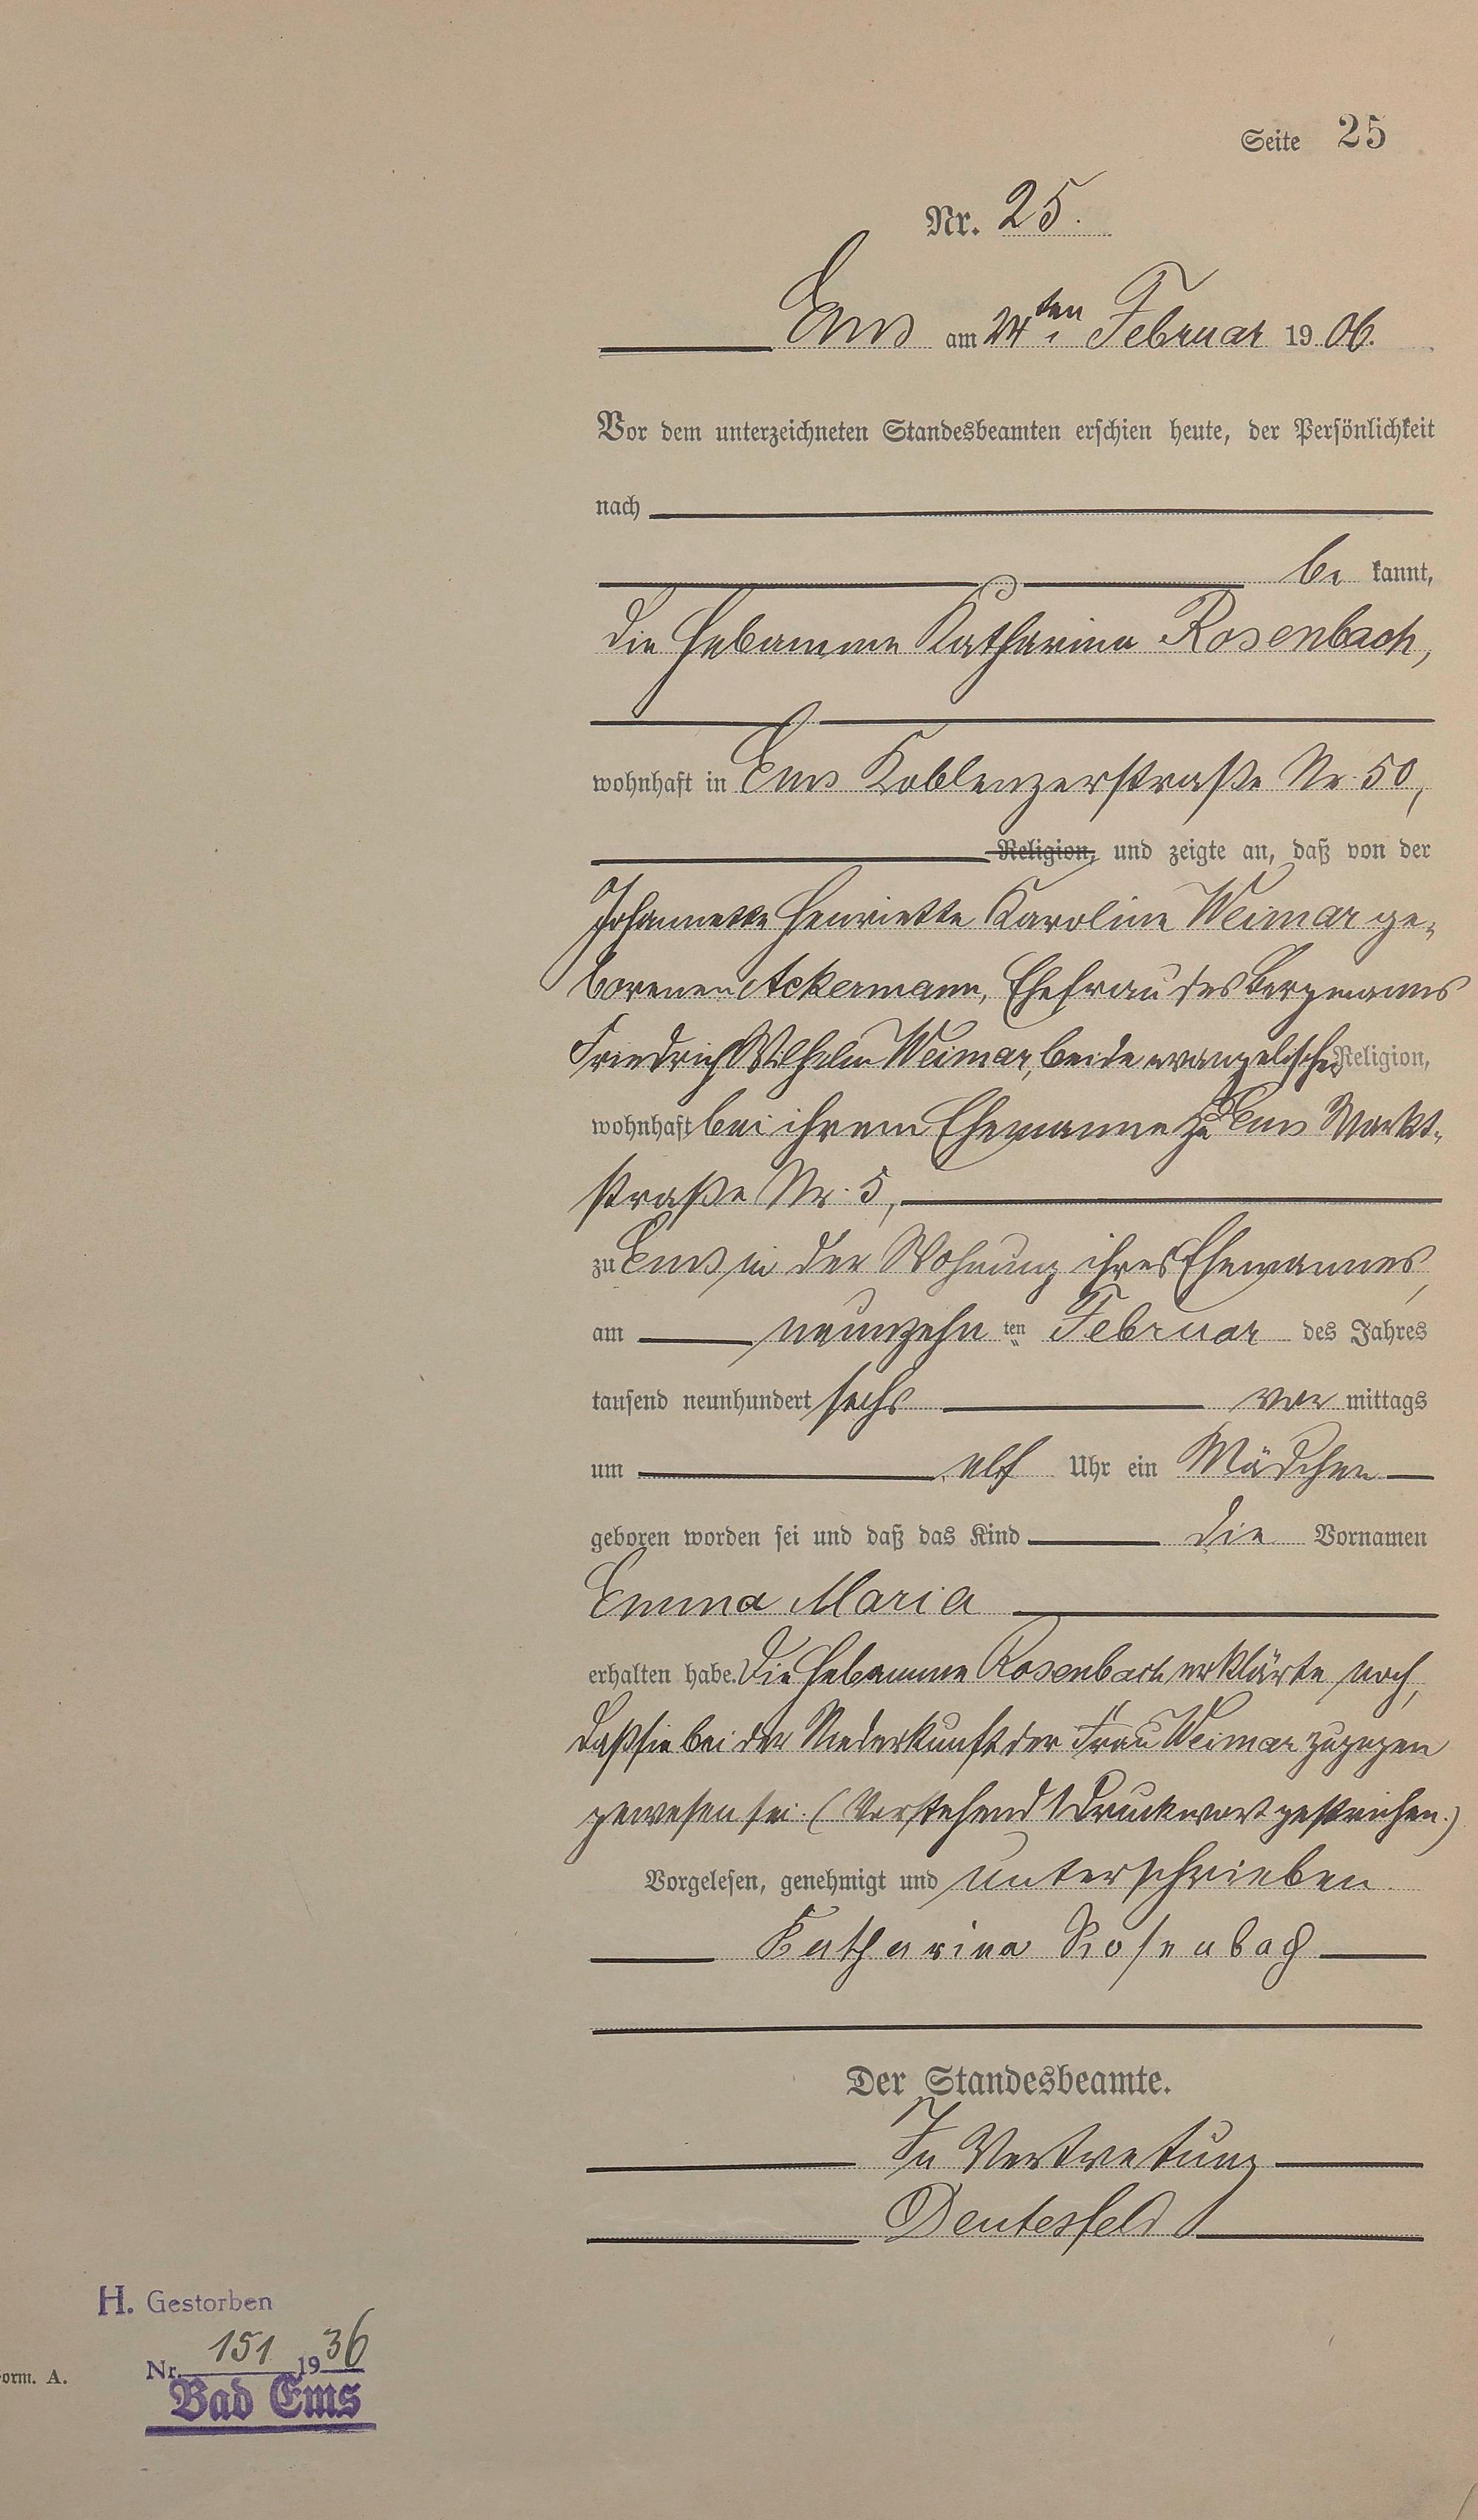 Seite 25
Nr. 25.
Ems am 24ten Februar 1906.
Vor dem unterzeichneten Standesbeamten erschien heute, der Persönlichkeit
nach
be kannt,
die Hebamme Katharina Rosenbach,
wohnhaft in Ems Koblenzerstraße Nr. 50,
Religion, und zeigte an, daß von der
Johannette Henriette Karoline Weimar ge-
borenen Ackermann, Ehefrau des Bergmanns
Friedrich Wilhelm Weimar, beide evangelischer Religion,
wohnhaft bei ihrem Ehemanne zu Ems Markt-
straße Nr. 5,
zu Ems in der Wohnung ihres Ehemannes,
am neunzehn ten Februar des Jahres
tausend neunhundert sechs vor mittags
um elf Uhr ein Mädchen
geboren worden sei und daß das Kind die Vornamen
Emma Maria
erhalten habe. Die Hebamme Rosenbach erklärte noch,
daß sie bei der Niederkunft der Frau Weimar zugegen
gewesen sei. (Vorstehend 1 Druckwort gestrichen.)
Vorgelesen, genehmigt und unterschrieben
Katharina Rosenbach
Der Standesbeamte.
In Vertretung
Deutesfeld
H. Gestorben
Nr. 151 1936
Bad Ems
orm. A.